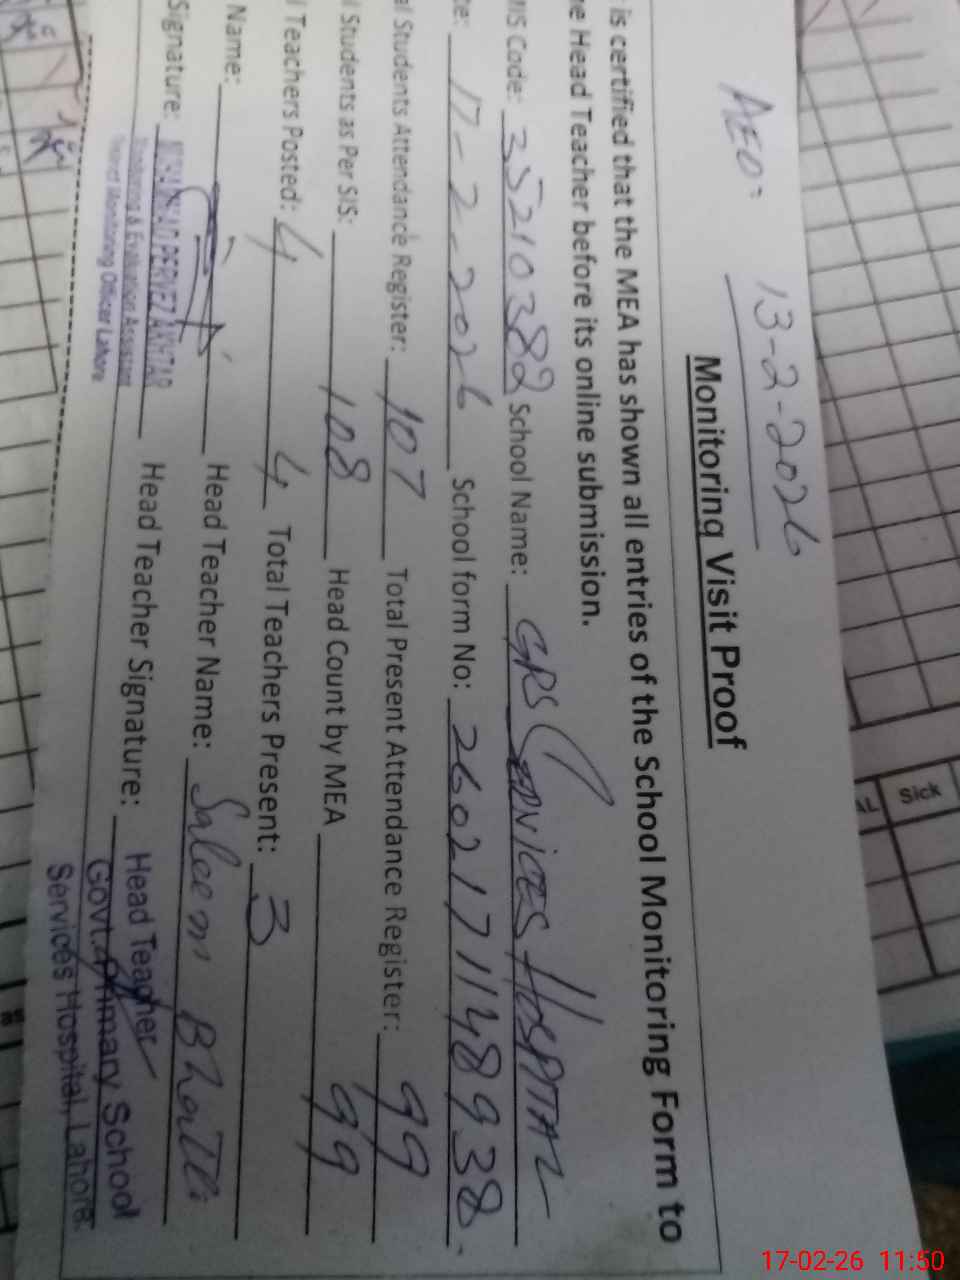 AEO: 13-2-2026
Monitoring Visit Proof
is certified that the MEA has shown all entries of the School Monitoring Form to
e Head Teacher before its online submission.
MIS Code: 35210382 School Name: GPS SERVICES HOSPITAL
te: 17-2-2026 School form No: 260217114893 8.
al Students Attendance Register: 107 Total Present Attendance Register: 99
l Students as Per SIS: 108 Head Count by MEA 99
l Teachers Posted: 4 4 Total Teachers Present: 3
Name: Head Teacher Name: Saleem Bhatti
Signature: PERVEZ AKHTAR Head Teacher Signature:
Monitoring & Evaluation Assistant
District Monitoring Officer Lahore
Head Teacher
Govt. Primary School
Services Hospital, Lahore.
AL Sick
17-02-26 11:50